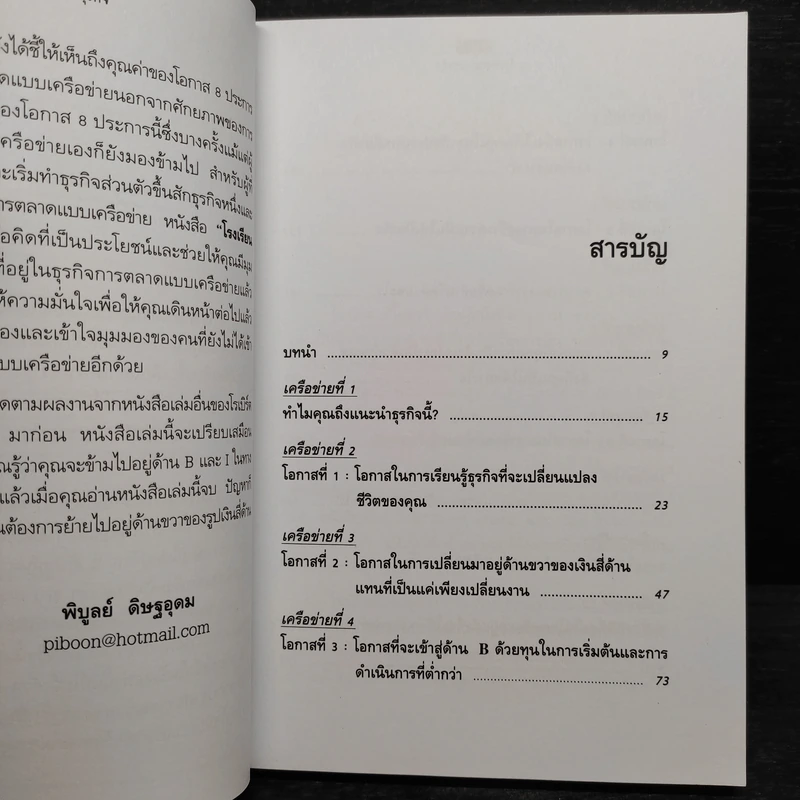 ได้ชี้ให้เห็นถึงคุณค่าของโอกาส 8 ประการ
แบบเครือข่ายนอกจากศักยภาพของการ
องโอกาส 8 ประการนี้ซึ่งบางครั้งแม้แต่ผู้
ครือข่ายเองก็ยังมองข้ามไป สำหรับผู้ที่
ะเริ่มทำธุรกิจส่วนตัวขึ้นสักธุรกิจหนึ่งและ
ารตลาดแบบเครือข่าย หนังสือ "โรงเรียน
อคิดที่เป็นประโยชน์และช่วยให้คุณมีมุม
ที่อยู่ในธุรกิจการตลาดแบบเครือข่ายแล้ว
ห้ความมั่นใจเพื่อให้คุณเดินหน้าต่อไปแล้ว
องและเข้าใจมุมมองของคนที่ยังไม่ได้เข้า
บบเครือข่ายอีกด้วย
ดตามผลงานจากหนังสือเล่มอื่นของโรเบิร์ต
มาก่อน หนังสือเล่มนี้จะเปรียบเสมือน
ณรู้ว่าคุณจะข้ามไปอยู่ด้าน B และ I ในทาง
แล้วเมื่อคุณอ่านหนังสือเล่มนี้จบ ปัญหาก็
นต้องการย้ายไปอยู่ด้านขวาของรูปเงินสี่ด้าน
พิบูลย์ ดิษฐอุดม
piboon@hotmail.com
สารบัญ
บทนำ ........ 9
เครือข่ายที่ 1
ทำไมคุณถึงแนะนำธุรกิจนี้? ........ 15
เครือข่ายที่ 2
โอกาสที่ 1 : โอกาสในการเรียนรู้ธุรกิจที่จะเปลี่ยนแปลง
ชีวิตของคุณ ........ 23
เครือข่ายที่ 3
โอกาสที่ 2 : โอกาสในการเปลี่ยนมาอยู่ด้านขวาของเงินสี่ด้าน
แทนที่เป็นแค่เพียงเปลี่ยนงาน ........ 47
เครือข่ายที่ 4
โอกาสที่ 3 : โอกาสที่จะเข้าสู่ด้าน B ด้วยทุนในการเริ่มต้นและการ
ดำเนินการที่ต่ำกว่า ........ 73